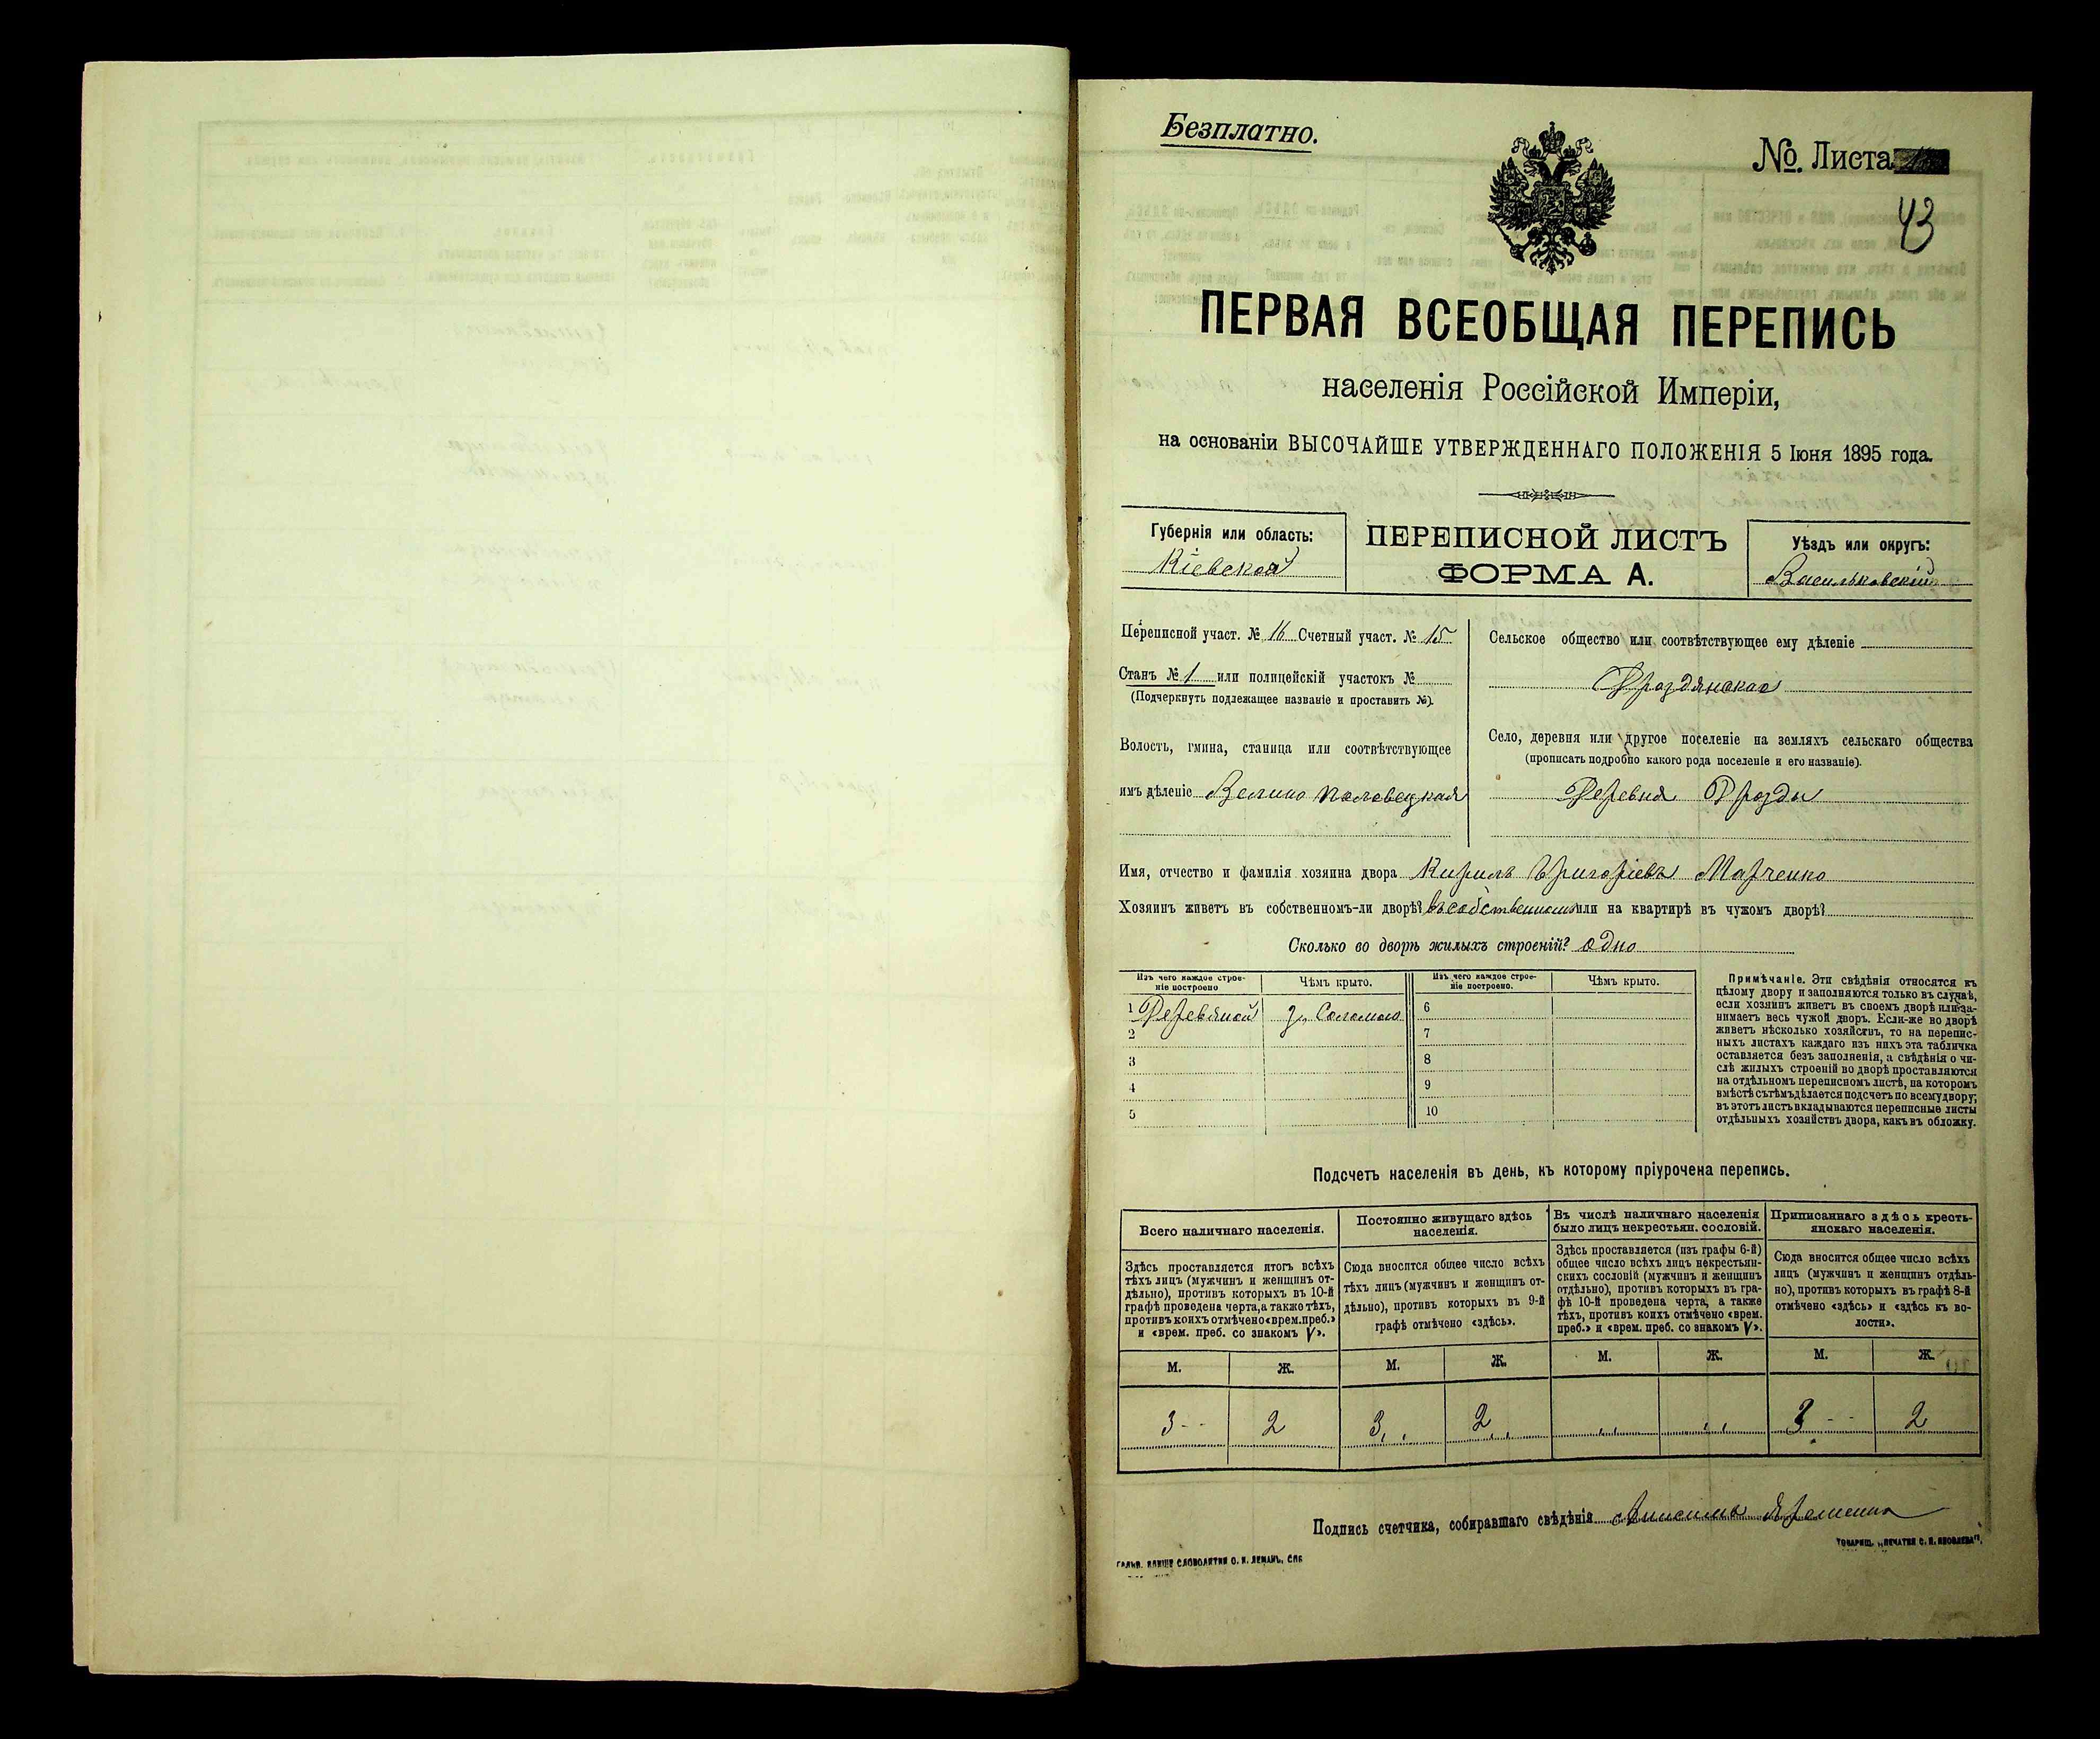 Безплатно.
№. Листа
43
ПЕРВАЯ ВСЕОБЩАЯ ПЕРЕПИСЬ
населенія Россійской Имперіи,
на основаніи ВЫСОЧАЙШЕ УТВЕРЖДЕННАГО ПОЛОЖЕНІЯ 5 Іюня 1895 года.
Губернія или область:
Кіевская
ПЕРЕПИСНОЙ ЛИСТЪ
ФОРМА А.
Уѣздъ или округъ:
Васильковскій
Переписной участ. № 16 Счетный участ. № 15
Станъ № 1 или полицейскій участокъ №
(Подчеркнуть подлежащее названіе и проставить №).
Волость, гмина, станица или соотвѣтствующее
имъ дѣленіе Велико Половецкая
Сельское общество или соотвѣтствующее ему дѣленіе
Дроздянское
Село, деревня или другое поселеніе на земляхъ сельскаго общества
(прописать подробно какого рода поселеніе и его названіе).
Деревня Дрозды
Имя, отчество и фамилія хозяина двора Кирилъ Григоріевъ Марченко
Хозяинъ живетъ въ собственномъ-ли дворѣ? въ собственномъ или на квартирѣ въ чужомъ дворѣ?
Сколько во дворѣ жилыхъ строеній? одно
Изъ чего каждое строе-
ніе построено
Чѣмъ крыто.
Изъ чего каждое строе-
ніе построено.
Чѣмъ крыто.
1 Деревяной Соломою
2
3
4
5
6
7
8
9
10
Примѣчаніе. Эти свѣдѣнія относятся къ
цѣлому двору и заполняются только въ случаѣ,
если хозяинъ живетъ въ своемъ дворѣ или за-
нимаетъ весь чужой дворъ. Если-же во дворѣ
живетъ нѣсколько хозяйствъ, то на перепис-
ныхъ листахъ каждаго изъ нихъ эта табличка
оставляется безъ заполненія, а свѣдѣнія о чи-
слѣ жилыхъ строеній во дворѣ проставляются
на отдѣльномъ переписномъ листѣ, на которомъ
вмѣстѣ съ тѣмъ дѣлается подсчетъ по всему двору;
въ этотъ листъ вкладываются переписные листы
отдѣльныхъ хозяйствъ двора, какъ въ обложку.
Подсчетъ населенія въ день, къ которому пріурочена перепись.
Всего наличнаго населенія.
Здѣсь проставляется итогъ всѣхъ
тѣхъ лицъ (мужчинъ и женщинъ от-
дѣльно), противъ которыхъ въ 10-й
графѣ проведена черта, а также тѣхъ,
противъ коихъ отмѣчено «врем. преб.»
и «врем. преб. со знакомъ V».
М. Ж.
3 2
Постоянно живущаго здѣсь
населенія.
Сюда вносится общее число всѣхъ
тѣхъ лицъ (мужчинъ и женщинъ от-
дѣльно), противъ которыхъ въ 9-й
графѣ отмѣчено «здѣсь».
М. Ж.
3 2
Въ числѣ наличнаго населенія
было лицъ некрестьян. сословій.
Здѣсь проставляется (изъ графы 6-й)
общее число всѣхъ лицъ некрестьян-
скихъ сословій (мужчинъ и женщинъ
отдѣльно), противъ которыхъ въ гра-
фѣ 10-й проведена черта, а также
тѣхъ, противъ коихъ отмѣчено «врем.
преб.» и «врем. преб. со знакомъ V».
М. Ж.
Приписаннаго здѣсь кресть-
янскаго населенія.
Сюда вносится общее число всѣхъ
лицъ (мужчинъ и женщинъ отдѣль-
но), противъ которыхъ въ графѣ 8-й
отмѣчено «здѣсь» и «здѣсь къ во-
лости».
М. Ж.
3 2
Подпись счетчика, собиравшаго свѣдѣнія
ГАЛЬВ. КЛИШЕ СЛОВОЛИТНИ О. И. ЛЕМАНЪ, СПБ
ТОВАРИЩ. „ПЕЧАТНЯ С. П. ЯКОВЛЕВА".